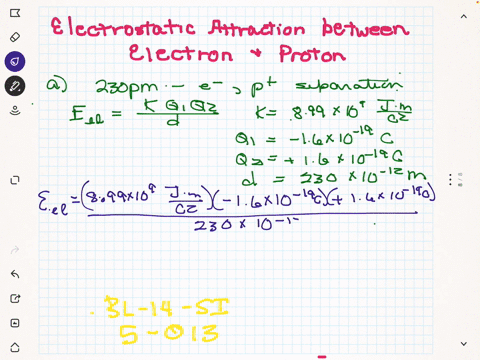 Electrostatic Attraction between
Electron & Proton
a) 230pm - e⁻, p⁺ separation
E_el = K Q₁ Q₂ / d
K = 8.99 × 10⁹ J·m/C²
Q₁ = -1.6 × 10⁻¹⁹ C
Q₂ = + 1.6 × 10⁻¹⁹ C
d = 230 × 10⁻¹² m
E_el = (8.99×10⁹ J·m/C²)(-1.6×10⁻¹⁹C)(+1.6×10⁻¹⁹C)
230 × 10⁻¹
3L-14-SI
5-013